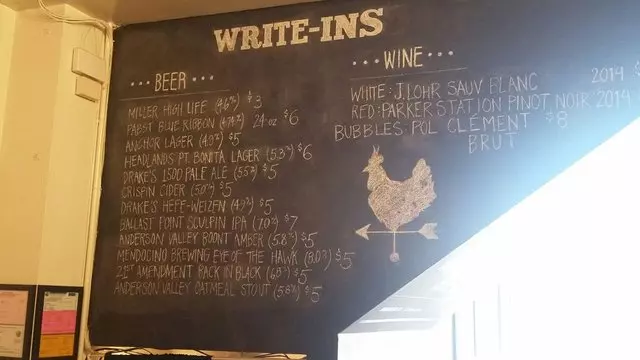 WRITE-INS
BEER
MILLER HIGH LIFE (4.6%) $3
PABST BLUE RIBBON (4.74%) 24 oz $6
ANCHOR LAGER (4.9%) $5
HEADLANDS PT. BONITA LAGER (5.3%) $6
DRAKE'S 1500 PALE ALE (5.5%) $5
CRISPIN CIDER (5.0%) $5
DRAKE'S HEFE-WEIZEN (4.9%) $5
BALLAST POINT SCULPIN IPA (7.0%) $7
ANDERSON VALLEY BOONT AMBER (5.8%) $5
MENDOCINO BREWING EYE OF THE HAWK (8.0%) $5
21ST AMENDMENT BACK IN BLACK (6.8%) $5
ANDERSON VALLEY OATMEAL STOUT (5.8%) $5
WINE
WHITE: J. LOHR SAUV BLANC 2014 $
RED: PARKER STATION PINOT NOIR 2014
BUBBLES POL CLÉMENT $8
BRUT